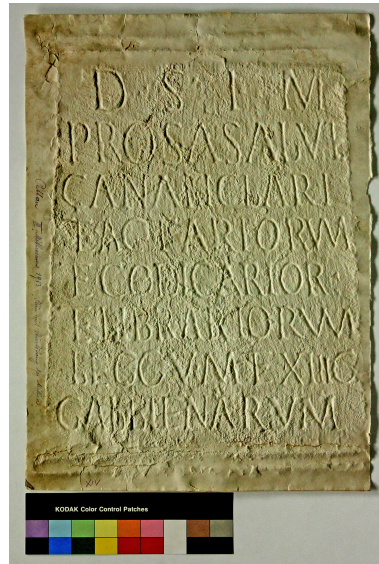 D S I M
PRO SA SALVT
CANALICLARI
ET ACTARIORVM
ET CODICARIOR
ET LIBRARIORVM
LEGG V M ET XIII G
GALLIENARVM
KODAK Color Control Patches